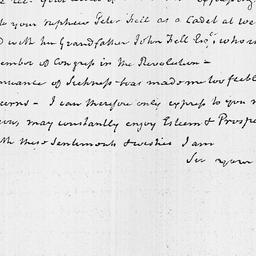 your nephew Peter Fell as a Cadet at we
d with his Grandfather John Fell Esqr, who w
ember of Congress in the Revolution –
nuance of Sickness has made me too feeble
cerns – I can therefore only express to you m
may constantly enjoy Esteem & Prospe
th these Sentiments & wishes I am
Sir your